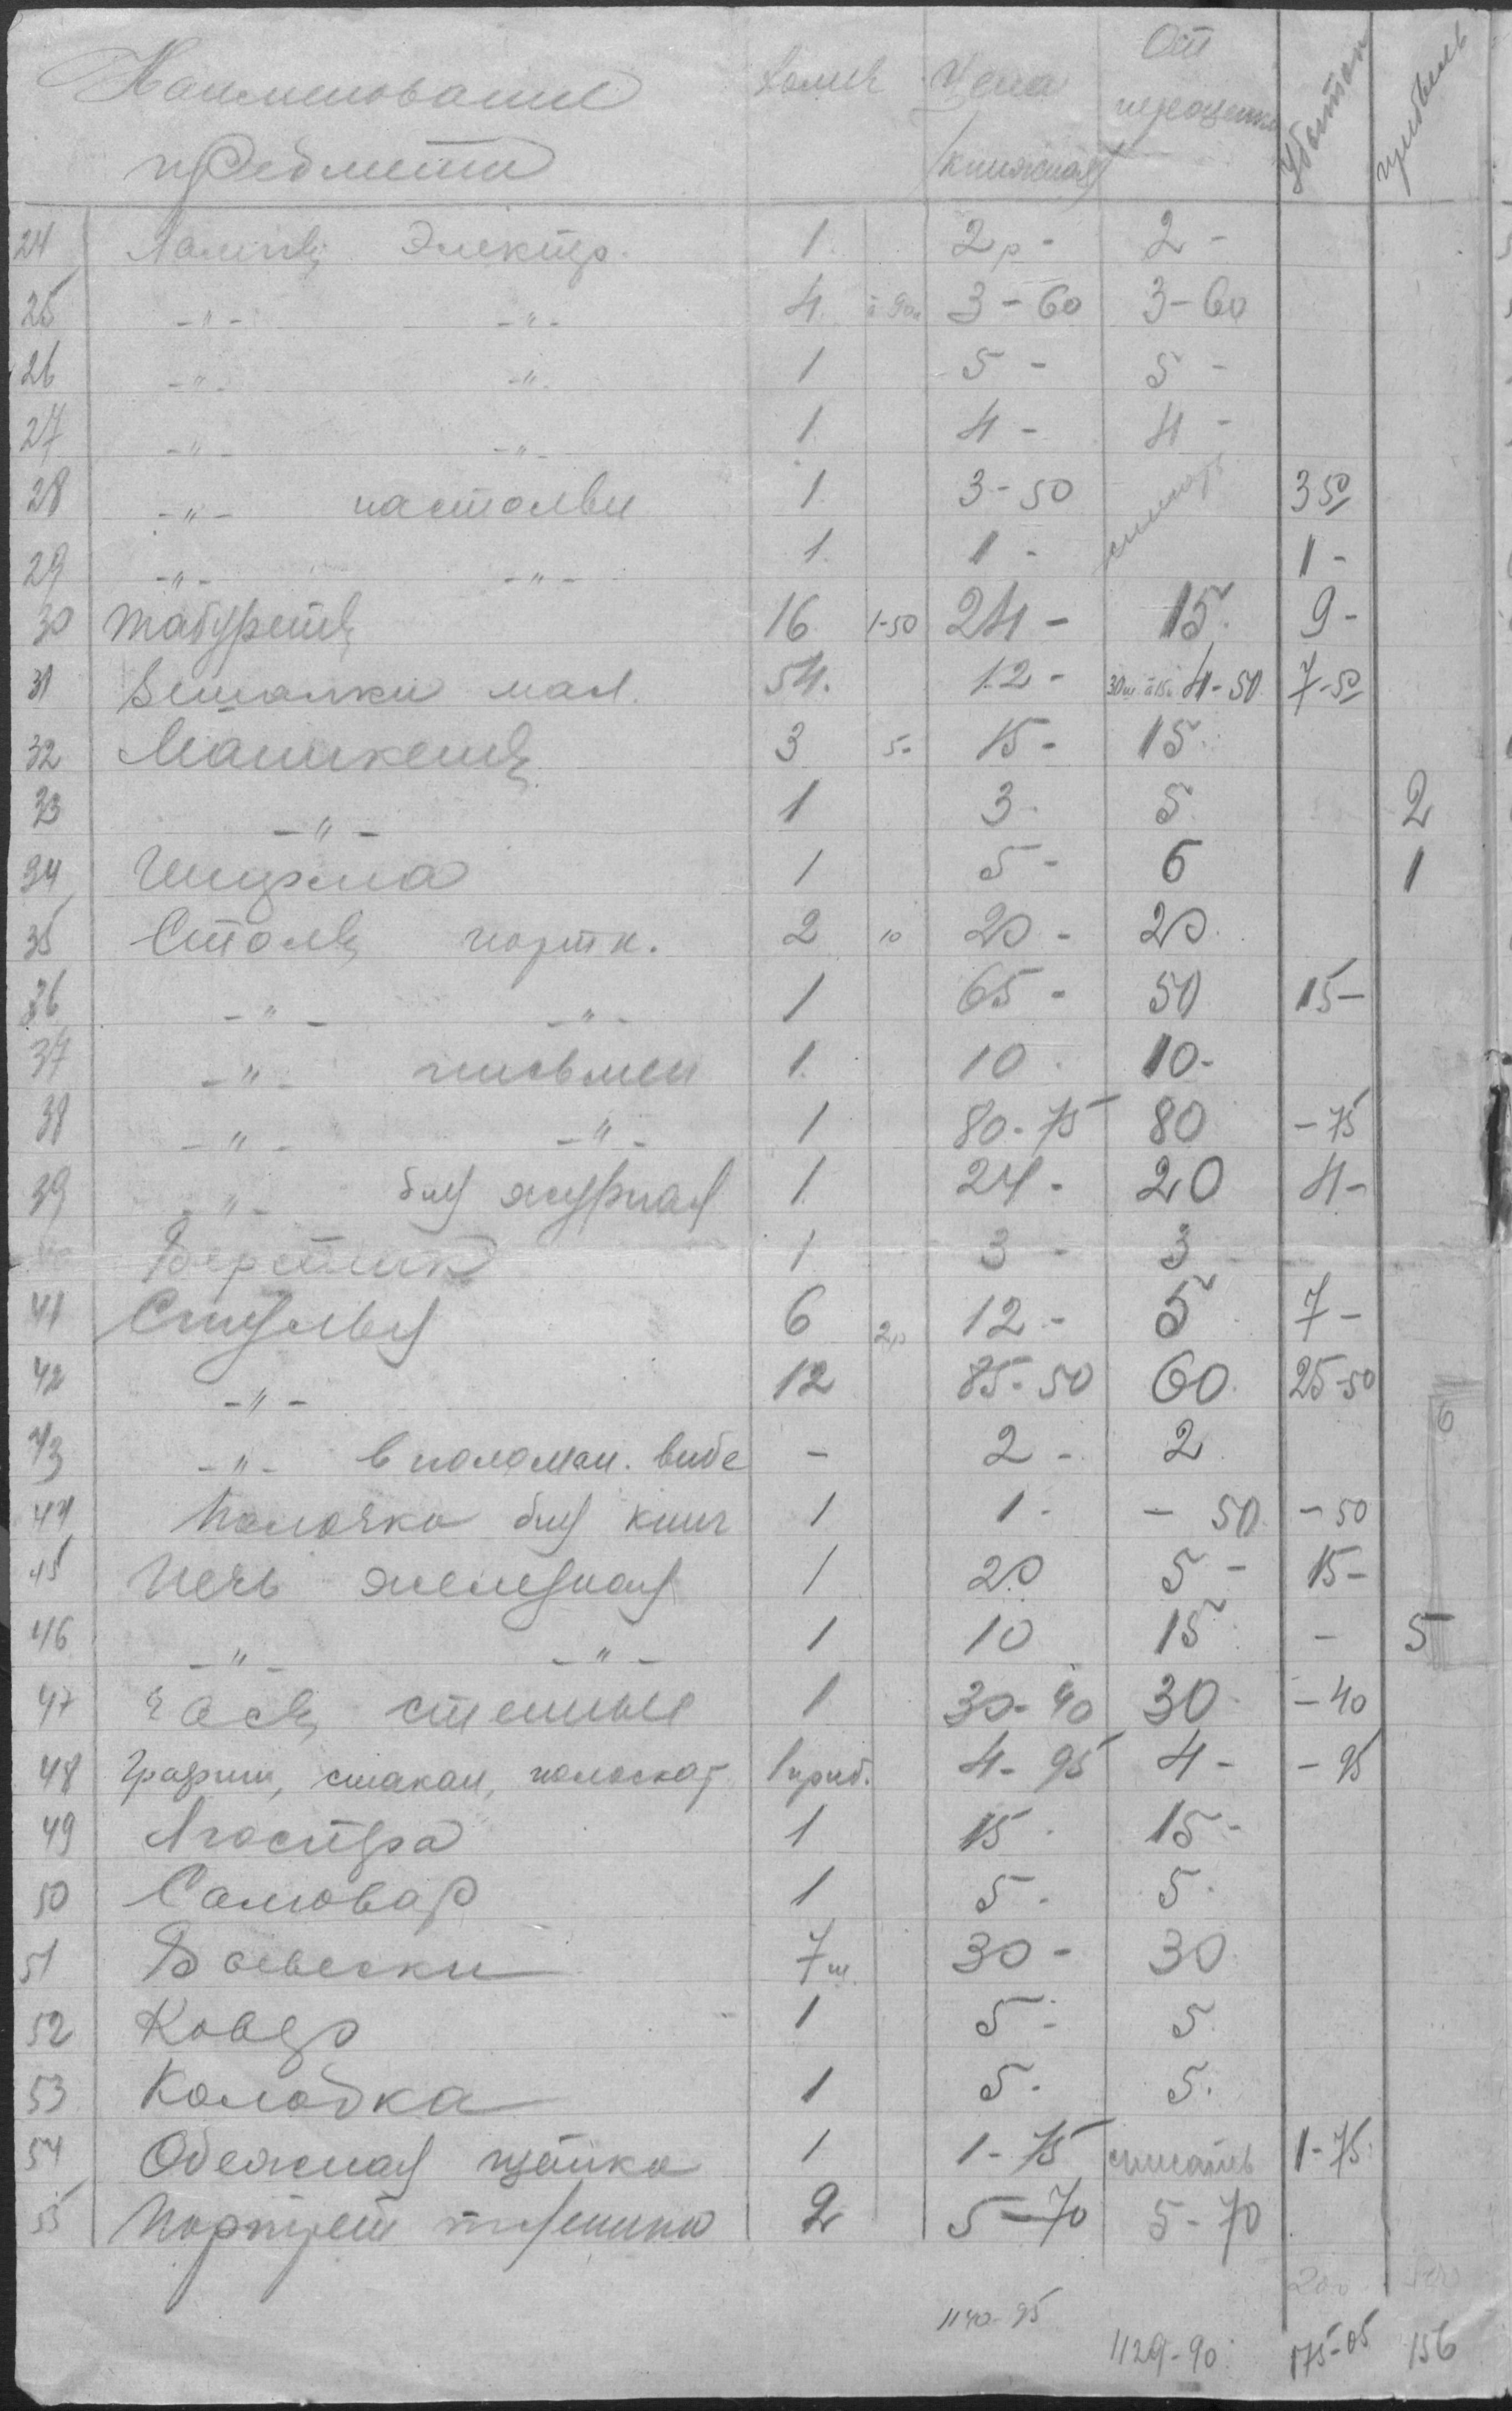 Наименование Колич Цена От
предмети /книжная/ переоценки Убыток прибыль
24 Лампы Электр. 1. 2р - 2 -
25 -"- -"- 4. à 90к 3-60 3-60
26 -"- -"- 1 5 - 5 -
27 -"- -"- 1 4 - 4 -
28 -"- настольн 1 3-50 списать 3 50
29 -"- -"- 1. 1 - 1 -
30 Табуреты 16 1-50 24 - 15. 9 -
31 Вешалки мал. 54. 12 - 30ш à 15к 4-50 7-50
32 Маникены 3 5- 15 - 15
33 -"- 1 3 - 5 2
34 Ширма 1 5 - 6 1
35 Столы портн. 2 10 20 - 20
36 -"- -"- 1 65 - 50 15 -
37 -"- письмен 1. 10 10 -
38 -"- -"- 1 80-75 80 - 75
39 -"- для журнал 1 24 - 20 4 -
Верстик 1 3 - 3
41 Стулья 6 2р 12 - 5 7 -
42 -"- 12 85-50 60 25-50
43 -"- в поломан. виде - 2 - 2
44 Полочка для книг 1 1 - - 50 - 50
45 Печь железная 1 20 5 - 15 -
46 -"- -"- 1 10 15 - 5
47 Часы стенные 1 30-40 30 - 40
48 Графин, стакан, полоскат 1 приб. 4-95 4 - - 95
49 Люстра 1 15 15 -
50 Самовар 1 5 - 5 -
51 Вывески 7ш. 30 - 30
52 Ковер 1 5 - 5
53 Колодка 1 5 - 5.
54 Одежная щетка 1 1-75 списать 1-75
55 Портрет 2 5-70 5-70
1140-95
1129-90 175-05 156